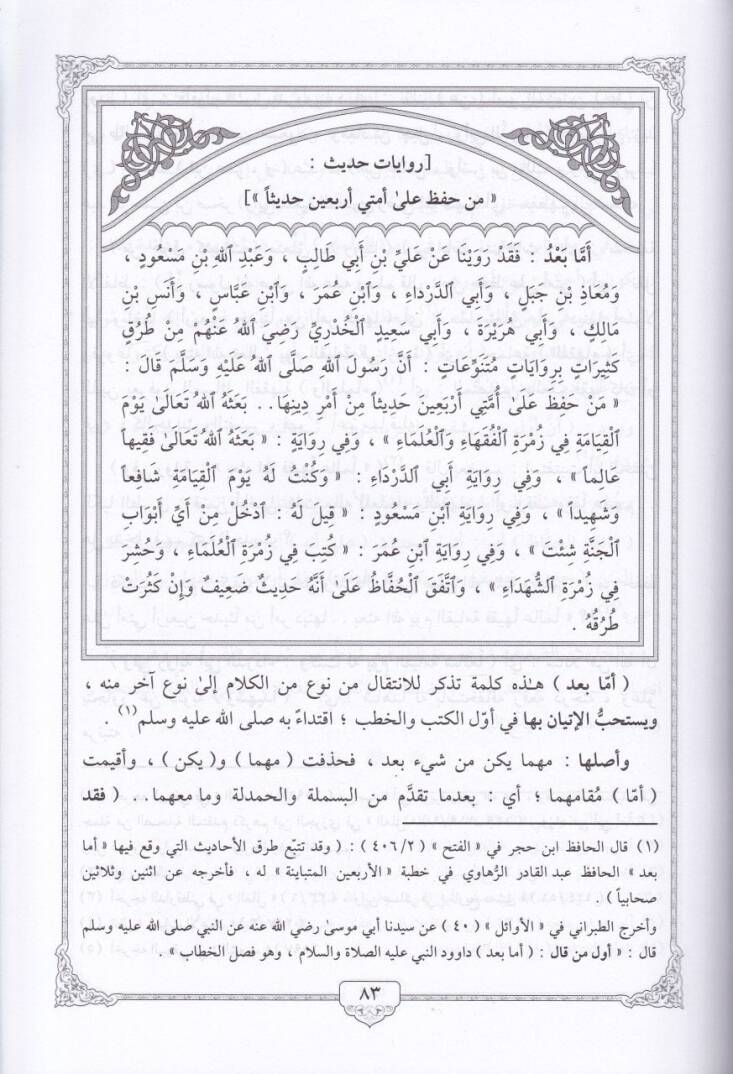 [روايات حديث :
« من حفظ علىٰ أمتي أربعين حديثاً »]
أَمَّا بَعْدُ : فَقَدْ رَوَيْنَا عَنْ عَلِيِّ بْنِ أَبِي طَالِبٍ ، وَعَبْدِ اللهِ بْنِ مَسْعُودٍ ،
وَمُعَاذِ بْنِ جَبَلٍ ، وَأَبِي الدَّرْدَاءِ ، وَٱبْنِ عُمَرَ ، وَٱبْنِ عَبَّاسٍ ، وَأَنَسِ بْنِ
مَالِكٍ ، وَأَبِي هُرَيْرَةَ ، وَأَبِي سَعِيدٍ الْخُدْرِيِّ رَضِيَ اللهُ عَنْهُمْ مِنْ طُرُقٍ
كَثِيرَاتٍ بِرِوَايَاتٍ مُتَنَوِّعَاتٍ : أَنَّ رَسُولَ اللهِ صَلَّى اللهُ عَلَيْهِ وَسَلَّمَ قَالَ :
« مَنْ حَفِظَ عَلَىٰ أُمَّتِي أَرْبَعِينَ حَدِيثاً مِنْ أَمْرِ دِينِهَا.. بَعَثَهُ اللهُ تَعَالَىٰ يَوْمَ
الْقِيَامَةِ فِي زُمْرَةِ الْفُقَهَاءِ وَٱلْعُلَمَاءِ » ، وَفِي رِوَايَةٍ : « بَعَثَهُ اللهُ تَعَالَىٰ فَقِيهاً
عَالِماً » ، وَفِي رِوَايَةِ أَبِي الدَّرْدَاءِ : « وَكُنْتُ لَهُ يَوْمَ الْقِيَامَةِ شَافِعاً
وَشَهِيداً » ، وَفِي رِوَايَةِ ٱبْنِ مَسْعُودٍ : « قِيلَ لَهُ : ٱدْخُلْ مِنْ أَيِّ أَبْوَابِ
الْجَنَّةِ شِئْتَ » ، وَفِي رِوَايَةِ ٱبْنِ عُمَرَ : « كُتِبَ فِي زُمْرَةِ الْعُلَمَاءِ ، وَحُشِرَ
فِي زُمْرَةِ الشُّهَدَاءِ » ، وَٱتَّفَقَ الْحُفَّاظُ عَلَىٰ أَنَّهُ حَدِيثٌ ضَعِيفٌ وَإِنْ كَثُرَتْ
طُرُقُهُ .
( أمّا بعد ) هـٰذه كلمة تذكر للانتقال من نوع من الكلام إلىٰ نوع آخر منه ،
ويستحبُّ الإتيان بها في أوّل الكتب والخطب ؛ اقتداءً به صلى الله عليه وسلم(١) .
وأصلها : مهما يكن من شيء بعد ، فحذفت ( مهما ) و( يكن ) ، وأقيمت
( أمّا ) مُقامهما ؛ أي : بعدما تقدَّم من البسملة والحمدلة وما معهما.. ( فقد
(١) قال الحافظ ابن حجر في « الفتح » ( ٤٠٦/٢ ) : ( وقد تتبّع طرق الأحاديث التي وقع فيها « أما
بعد » الحافظ عبد القادر الرُّهاوي في خطبة « الأربعين المتباينة » له ، فأخرجه عن اثنين وثلاثين
صحابياً ) .
وأخرج الطبراني في « الأوائل » ( ٤٠ ) عن سيدنا أبي موسىٰ رضي الله عنه عن النبي صلى الله عليه وسلم
قال : « أول من قال : ( أما بعد ) داوود النبي عليه الصلاة والسلام ، وهو فصل الخطاب » .
٨٣